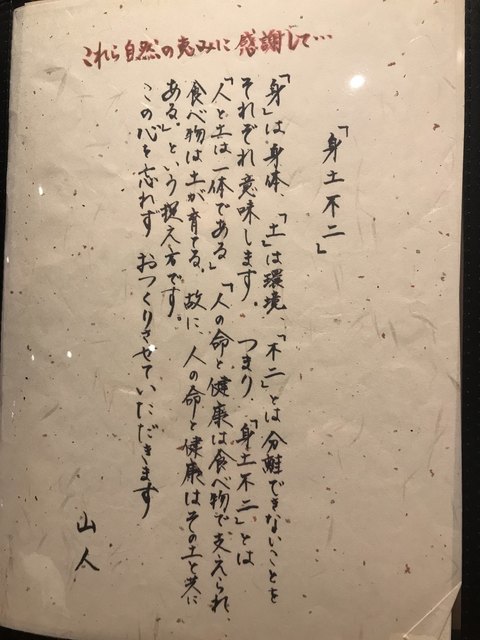 これら自然の恵みに感謝して…
「身土不二」
「身」は身体、「土」は環境、「不二」とは分離できないことを
それぞれ意味します。 つまり 「身土不二」とは
「人と土は一体である」「人の命と健康は食べ物で支えられ、
食べ物は土が育てる。故に、人の命と健康はその土と共に
ある。」という捉え方です。
この心を忘れず おつくりさせていただきます
山人